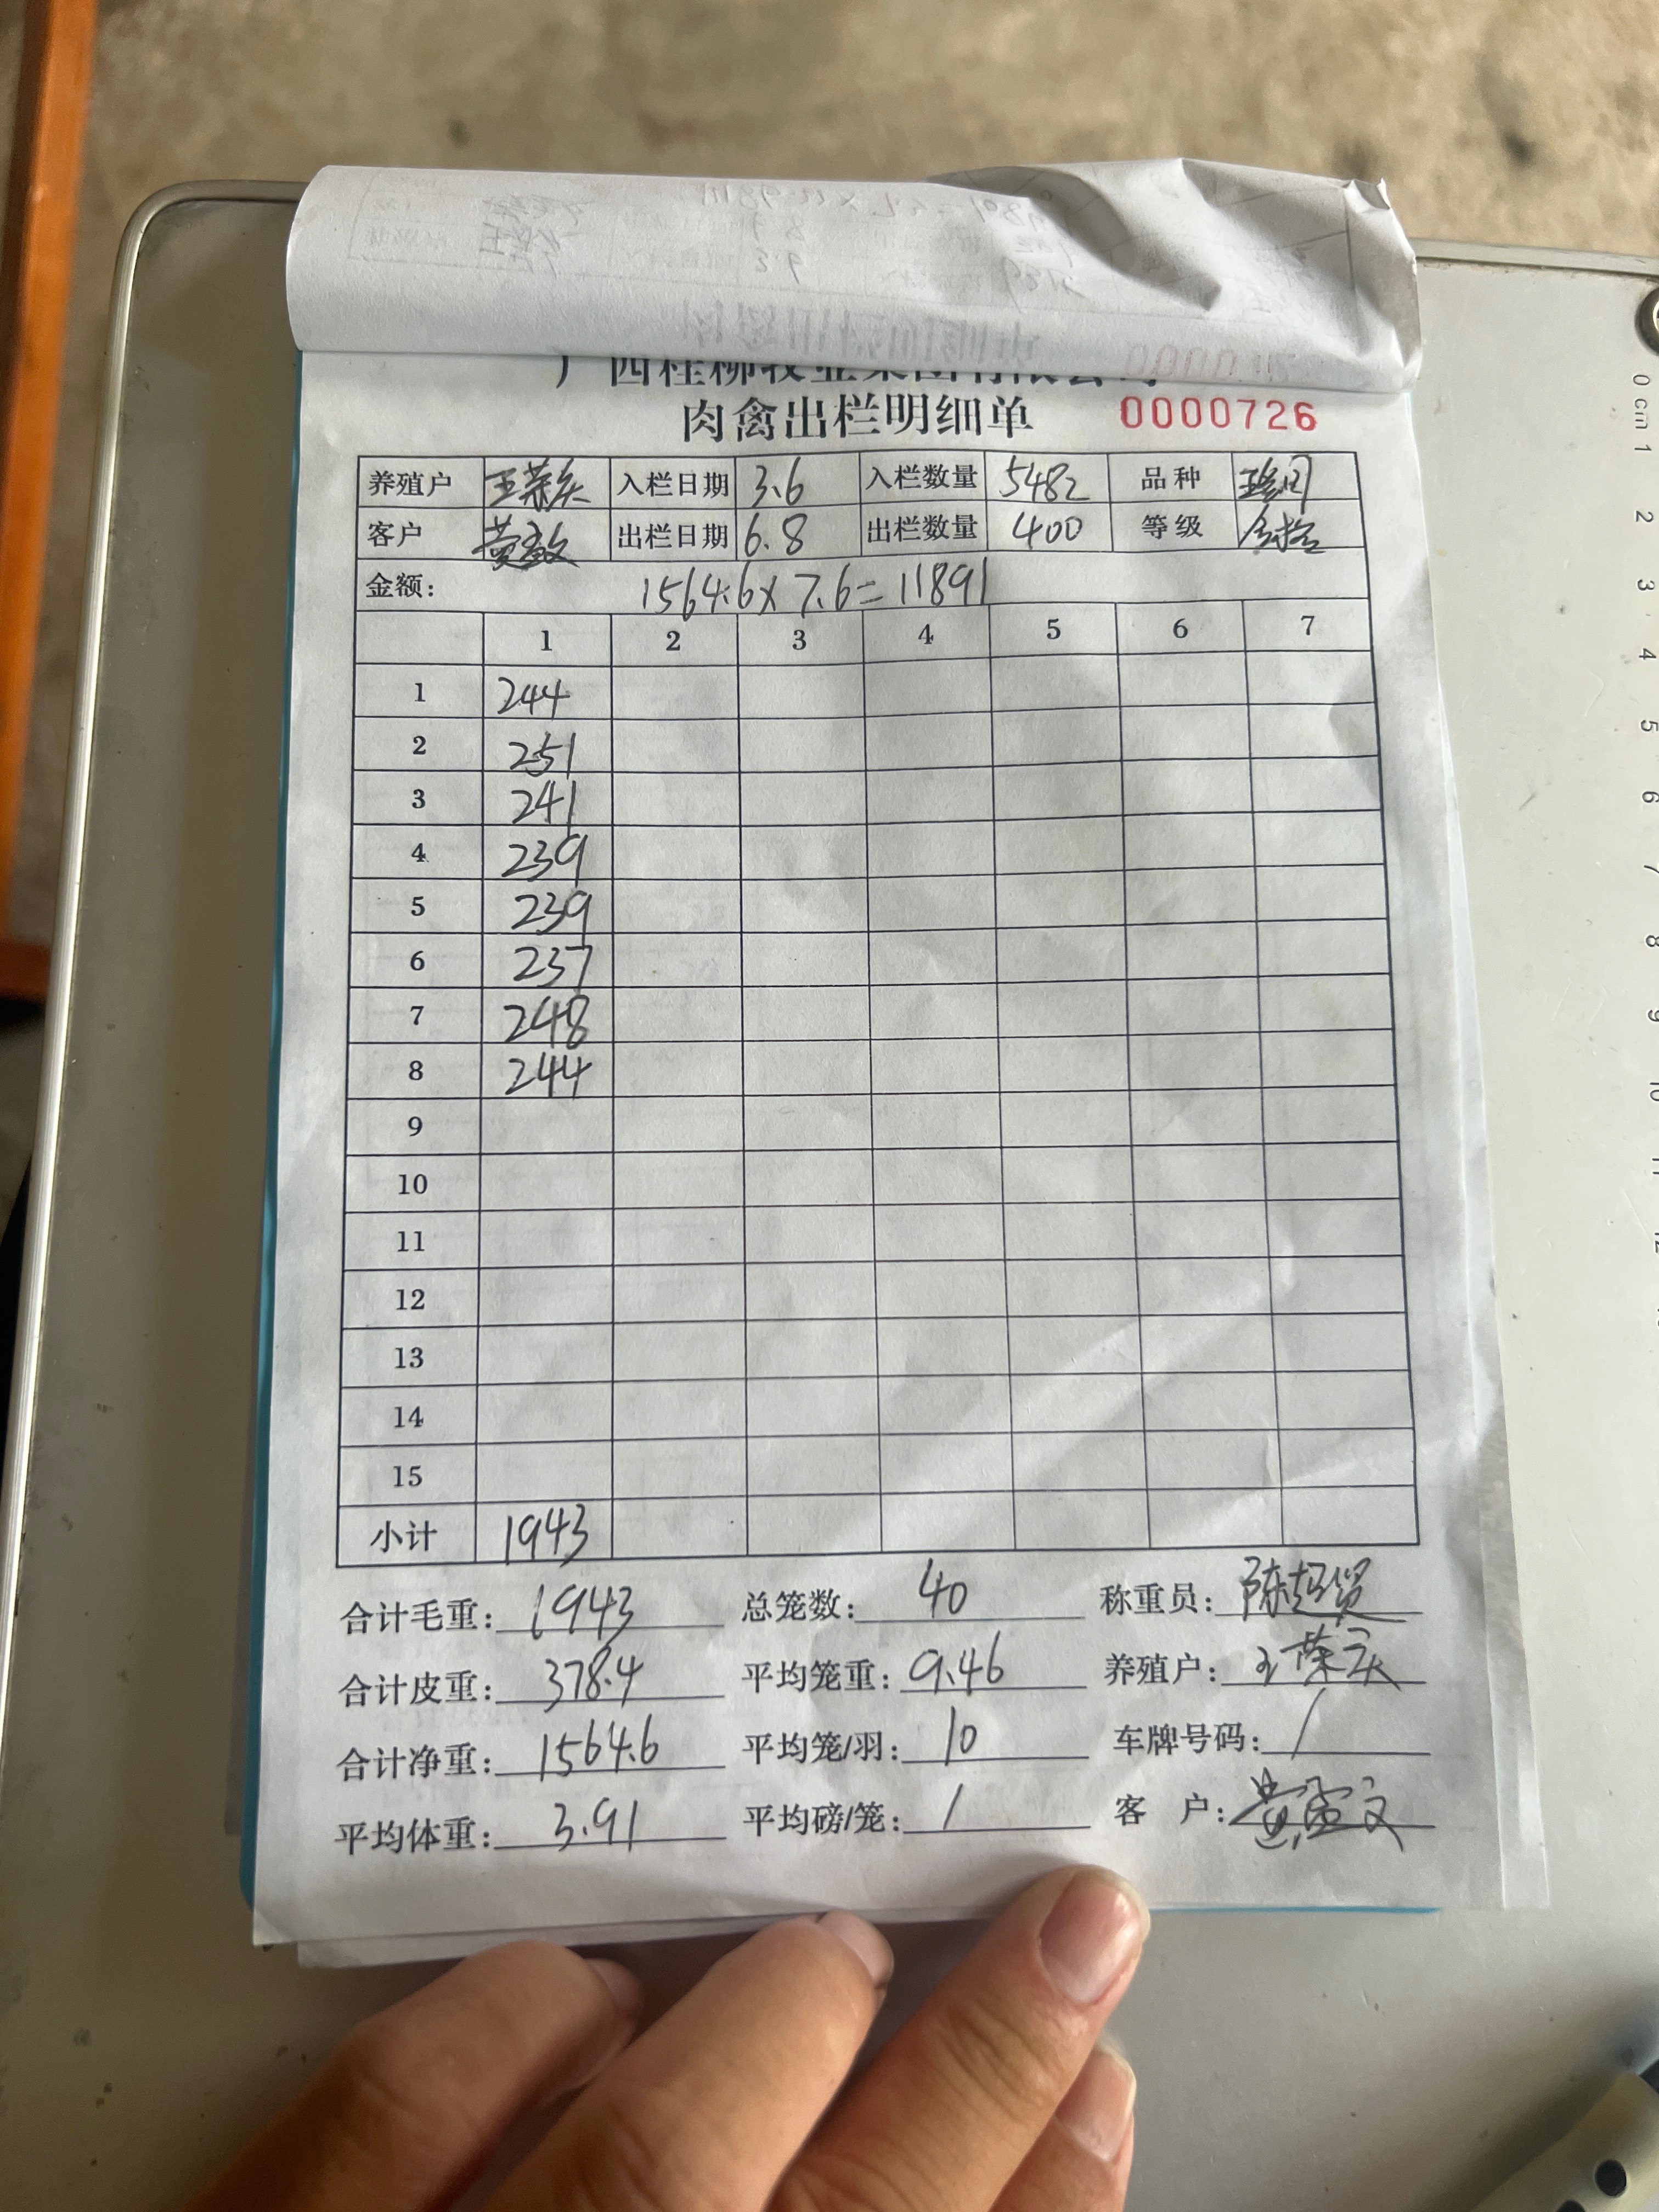 广西桂柳牧业集团有限公司
肉禽出栏明细单 0000726
养殖户 王荣庆 入栏日期 3.6 入栏数量 5482 品种
客户 出栏日期 6.8 出栏数量 400 等级
金额: 1564.6x7.6=11891
1 2 3 4 5 6 7
1 244
2 251
3 241
4 239
5 239
6 237
7 248
8 244
9
10
11
12
13
14
15
小计 1943
合计毛重: 1943 总笼数: 40 称重员:
合计皮重: 378.4 平均笼重: 9.46 养殖户: 王荣庆
合计净重: 1564.6 平均笼/羽: 10 车牌号码: /
平均体重: 3.91 平均磅/笼: / 客 户:
0 cm 1 2 3 4 5 6 7 8 9 10 11 12